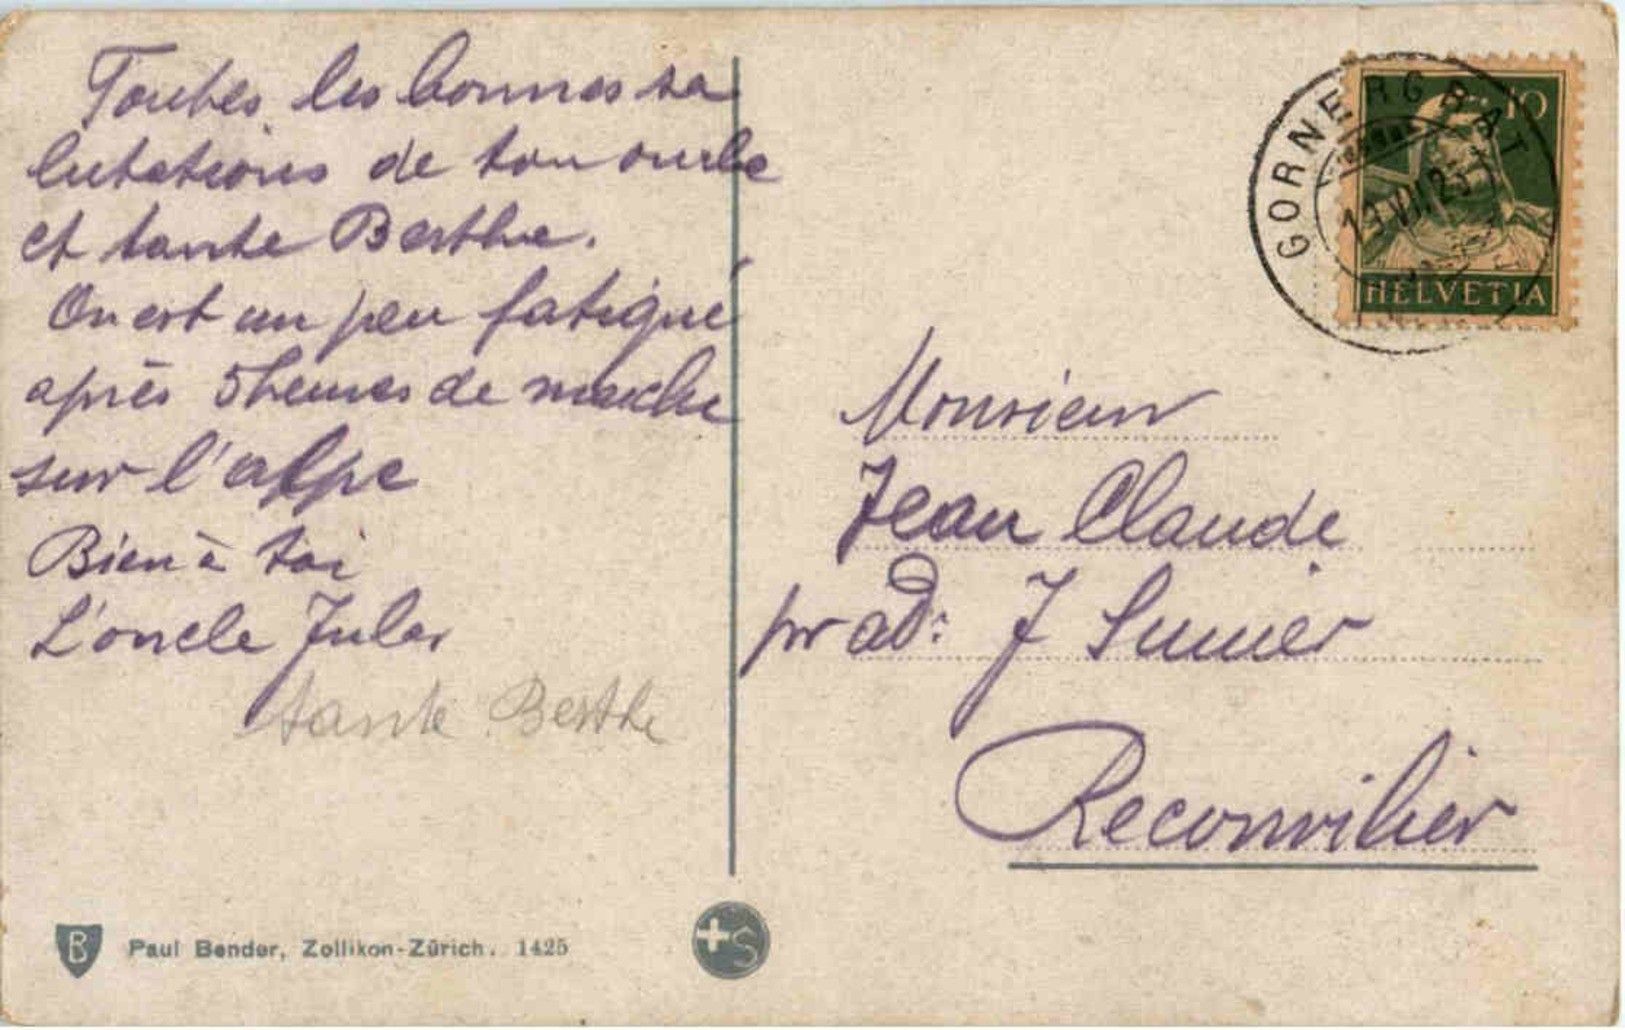 Toutes les bonnes sa
lutations de ton oncle
et tante Berthe.
On est un peu fatigué
après 5 heures de marche
sur l'alpe
Bien à toi
L'oncle Jules
tante Berthe
GORNERGRAT
19.VII.25
10
HELVETIA
Monsieur
Jean Claude
pr ad: J Sunier
Reconvilier
B Paul Bender, Zollikon-Zürich. 1425
S